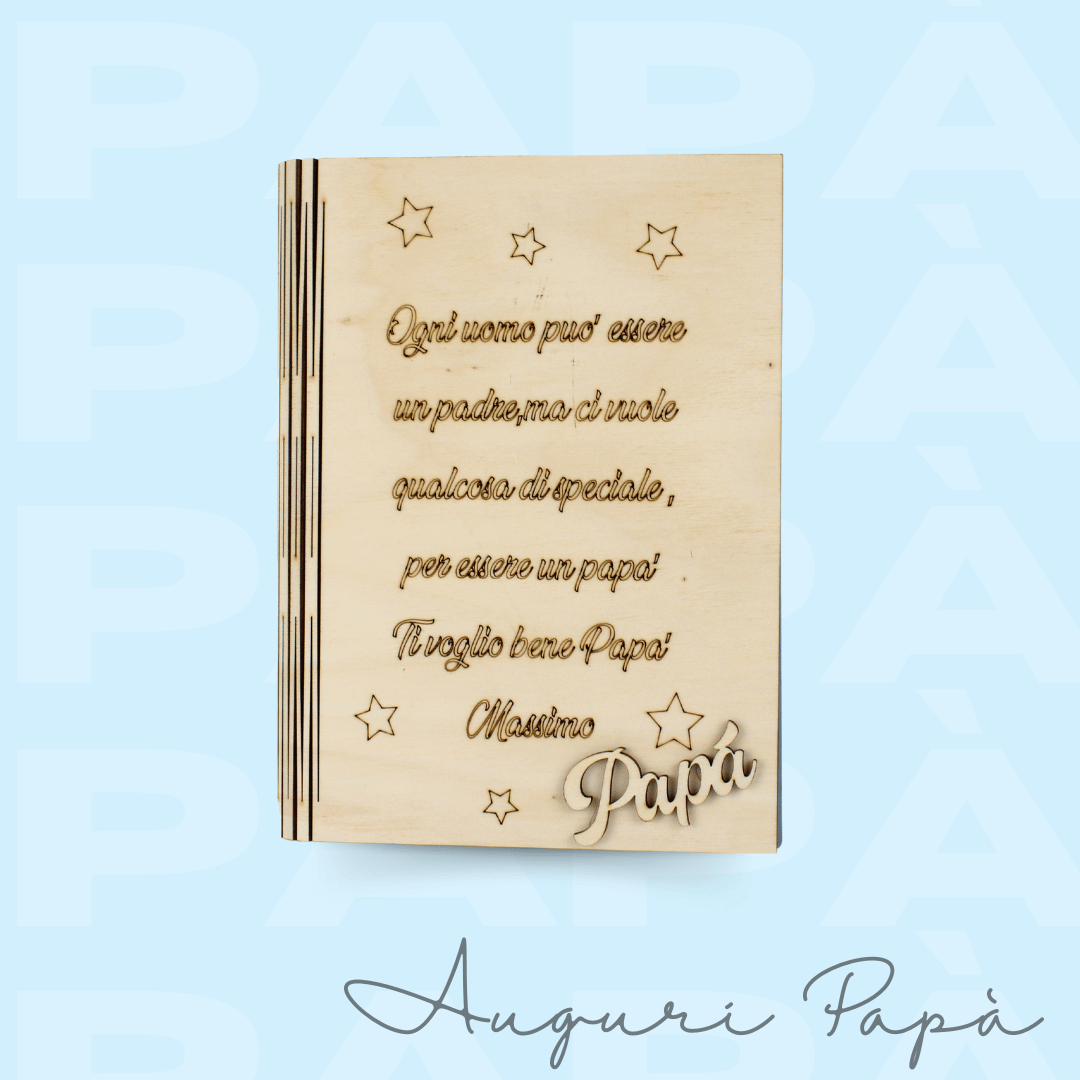 PAPÀ
Ogni uomo puo' essere
un padre,ma ci vuole
qualcosa di speciale ,
per essere un papa'
Ti voglio bene Papa'
Massimo
Papá
Auguri Papà